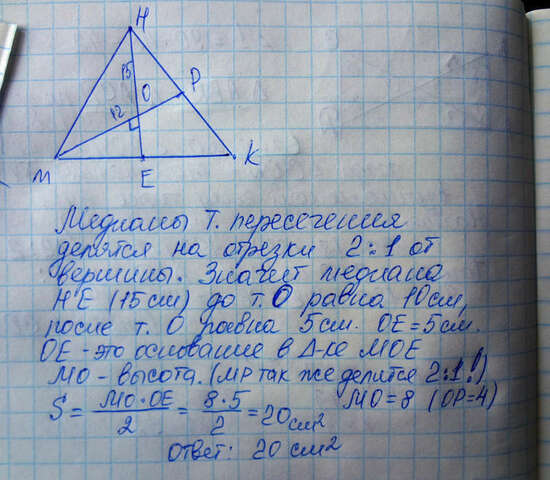 H
15
O
P
12
M
E
K
Медианы т. пересечения
делятся на отрезки 2:1 от
вершины. Значит медиана
НЕ (15см) до т. О равна 10см,
после т. О равна 5см. ОЕ=5см.
ОЕ - это основание в Δ-ке МОЕ
МО - высота. (МР так же делится 2:1!)
S = МО·ОЕ/2 = 8·5/2 = 20см² МО=8 (ОР=4)
Ответ: 20 см²